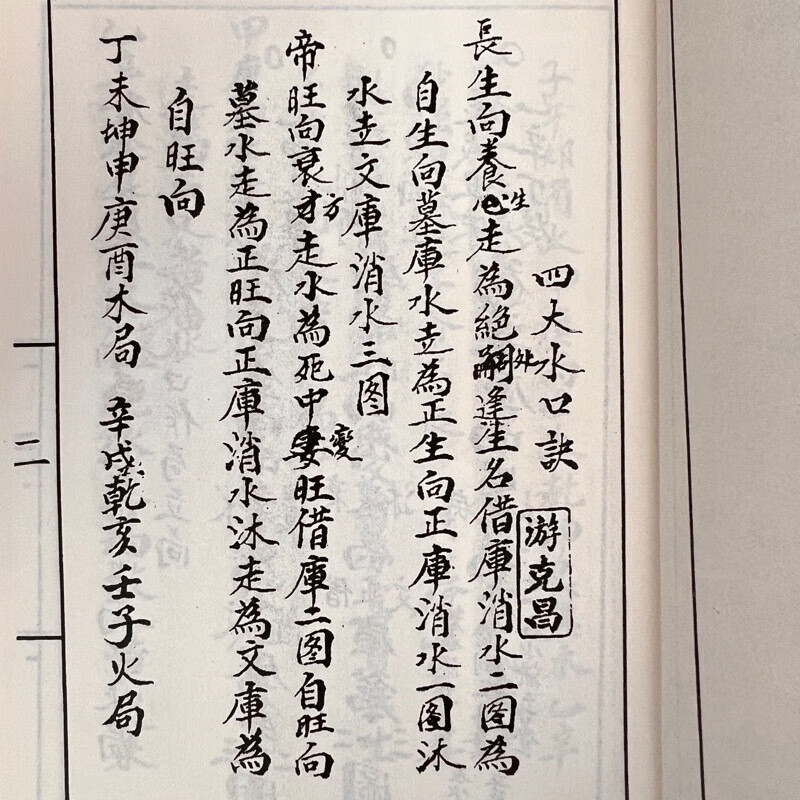 四大水口訣
游克昌
長生向養生走為絕處逢生名借庫消水二图為
自生向墓庫水走為正生向正庫消水一图沐
水走文庫消水三图
帝旺向衰方走水為死中變旺借庫二图自旺向
墓水走為正旺向正庫消水沐走為文庫為
自旺向
丁未坤申庚酉木局 辛戌乾亥壬子火局
二